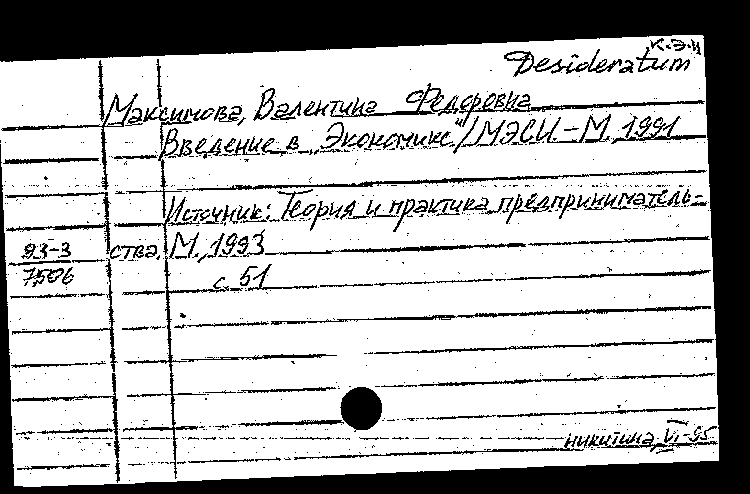 к.э.н
Desideratum
Максимова, Валентина Федоровна
Введение в „Экономикс"/МЭСИ.-М., 1991
Источник: Теория и практика предприниматель-
93-3 ства, М., 1993
7506 с. 51
никитина, VI-95